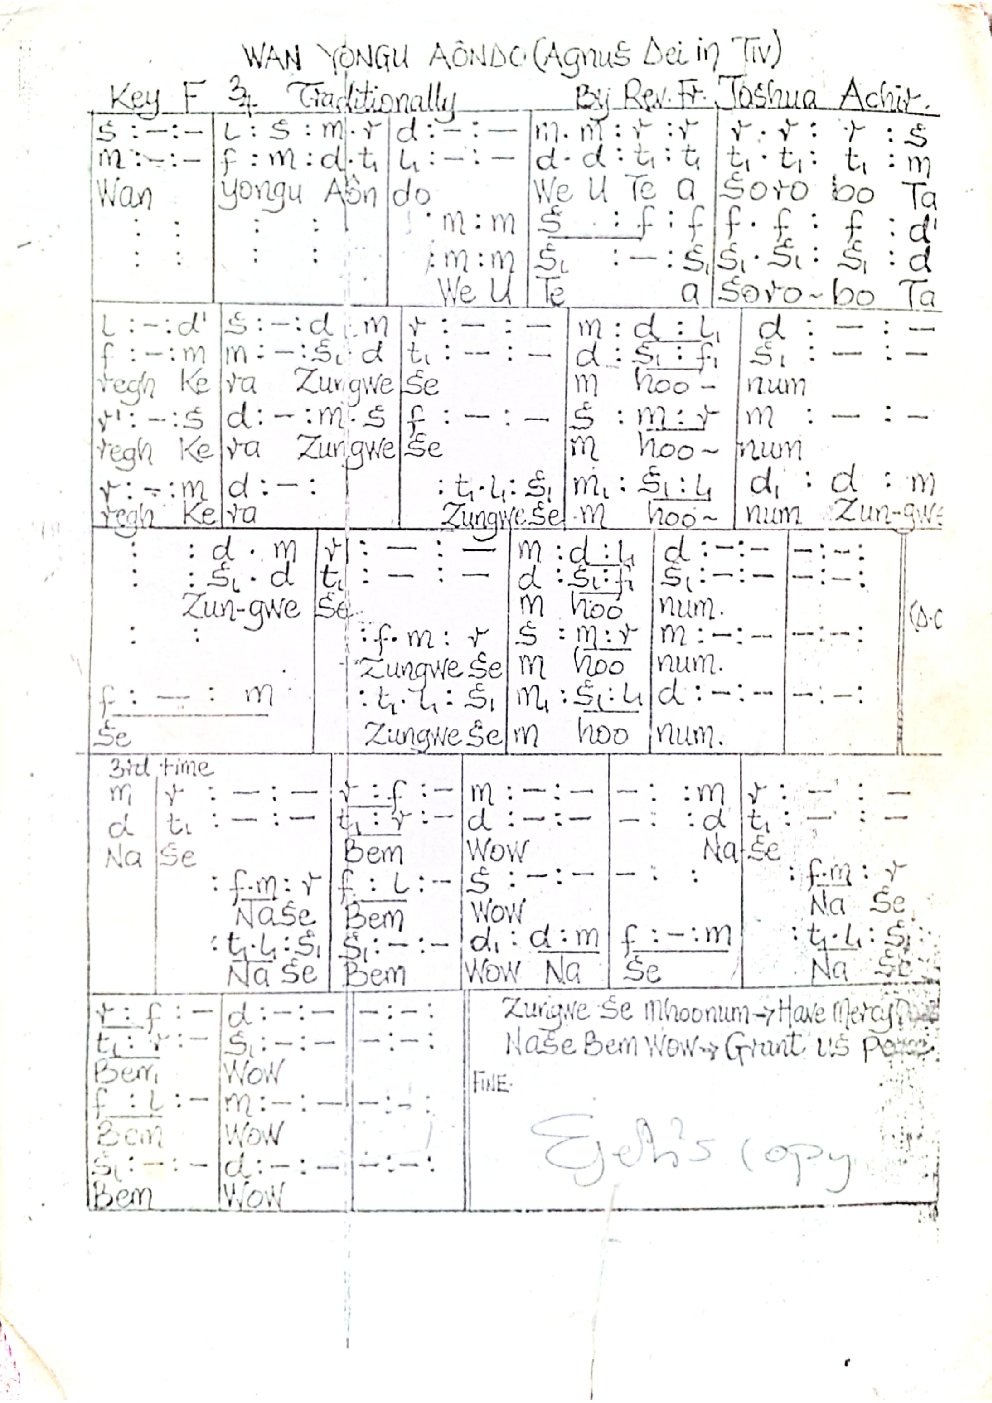 WAN YONGU AÔNDO (Agnus Dei in TIV)
Key F 3/4 Traditionally By Rev. Fr. Joshua Achir.
s : – : – | l : s : m . r | d : – : – | m . m : r : r | r . r : r : s
m : – : – | f : m : d . t₁ | l₁ : – : – | d . d : t₁ : t₁ | t₁ . t₁ : t₁ : m
Wan | yongu Aôn | do | We U Te a | Soro bo Ta
: : | : : | : m : m | s : f : f | f . f : f : d'
: : | : : | : m : m | s₁ : – : s₁ | s₁ . s₁ : s₁ : d
We U | Te a | Soro~bo Ta
l : – : d' | s : – : d . m | r : – : – | m : d : l₁ | d : – : –
f : – : m | m : – : s₁ . d | t₁ : – : – | d : s₁ : f₁ | s₁ : – : –
regh Ke | ra Zungwe | Se | m hoo – | num
r' : – : s | d : – : m . s | f : – : – | s : m : r | m : – : –
regh Ke | ra Zungwe | Se | m hoo~ | num
r : – : m | d : – : | : t₁ . l₁ : s₁ | m₁ : s₁ : l₁ | d₁ : d : m
regh Ke | ra | Zungwe Se | m hoo~ | num Zun-gwe
: : d . m | r : – : – | m : d : l₁ | d : – : – | – : – :
: : s₁ . d | t₁ : – : – | d : s₁ : f₁ | s₁ : – : – | – : – :
Zun-gwe | Se | m hoo | num. | (D.C
: : | : f . m : r | s : m : r | m : – : – | – : – :
Zungwe Se | m hoo | num.
f : – : m | : t₁ . l₁ : s₁ | m₁ : s₁ : l₁ | d : – : – | – : – :
Se | Zungwe Se | m hoo | num.
3rd time
m | r : – : – | r : f : – | m : – : – | – : : m | r : – : –
d | t₁ : – : – | t₁ : r : – | d : – : – | – : : d | t₁ : – : –
Na | Se | Bem | Wow | Na | Se
: f . m : r | f : l : – | s : – : – | – : : | : f . m : r
Na Se | Bem | Wow | Na Se
: t₁ . l₁ : s₁ | s₁ : – : – | d₁ : d : m | f : – : m | : t₁ . l₁ : s₁
Na Se | Bem | Wow Na | Se | Na Se
r : f : – | d : – : – | – : – : | Zungwe Se Mhoonum → Have Mercy
t₁ : r : – | s₁ : – : – | – : – : | Nase Bem Wow → Grant us peace.
Bem | Wow | FINE.
f : l : – | m : – : – | – : – :
Bem | Wow
s₁ : – : – | d : – : – | – : – :
Bem | Wow
Ejeh's copy